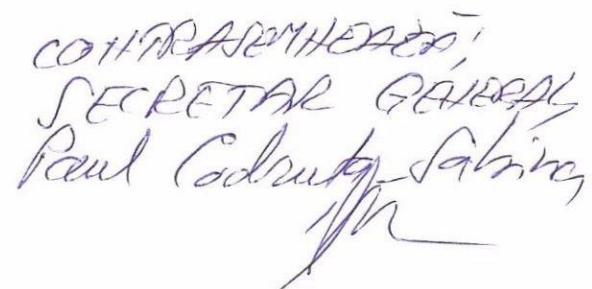 CONTRASEMNEAZĂ,
SECRETAR GENERAL,
Paul Codruța-Sabina,